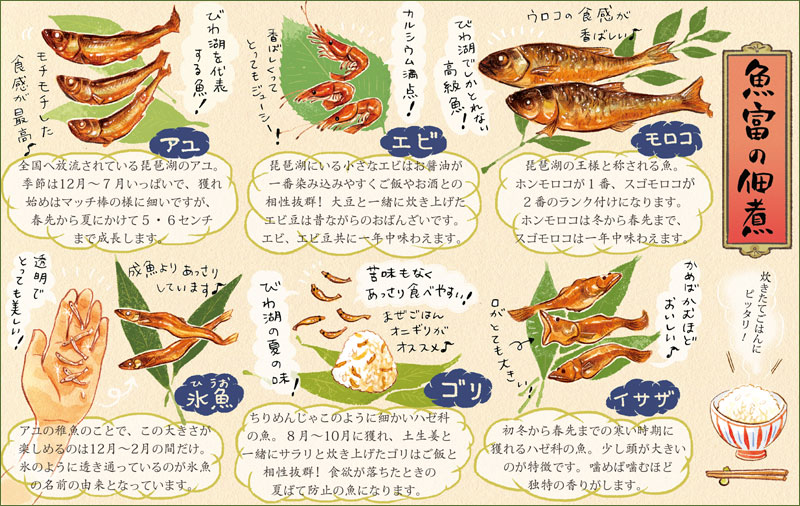 魚富の佃煮
ウロコの食感が
香ばしい♪
びわ湖でしかとれない
高級魚!
モロコ
琵琶湖の王様と称される魚。
ホンモロコが1番、スゴモロコが
2番のランク付けになります。
ホンモロコは冬から春先まで、
スゴモロコは一年中味わえます。
カルシウム満点!
香ばしくって
とってもジューシー!
エビ
琵琶湖にいる小さなエビはお醤油が
一番染み込みやすくご飯やお酒との
相性抜群!大豆と一緒に炊き上げた
エビ豆は昔ながらのおばんざいです。
エビ、エビ豆共に一年中味わえます。
びわ湖を代表
する魚!
モチモチした
食感が最高♪
アユ
全国へ放流されている琵琶湖のアユ。
季節は12月〜7月いっぱいで、獲れ
始めはマッチ棒の様に細いですが、
春先から夏にかけて5・6センチ
まで成長します。
炊きたてごはんに
ピッタリ!
かめばかむほど
おいしい♪
口がとても大きい!
イサザ
初冬から春先までの寒い時期に
獲れるハゼ科の魚。少し頭が大きい
のが特徴です。噛めば噛むほど
独特の香りがします。
苦味もなく
あっさり食べやすい!
まぜごはん
オニギリが
オススメ♪
びわ湖の夏の味!
ゴリ
ちりめんじゃこのように細かいハゼ科
の魚。8月〜10月に獲れ、土生姜と
一緒にサラリと炊き上げたゴリはご飯と
相性抜群!食欲が落ちたときの
夏ばて防止の魚になります。
成魚よりあっさり
しています♪
透明で
とっても美しい!
ひうお
氷魚
アユの稚魚のことで、この大きさが
楽しめるのは12月〜2月の間だけ。
氷のように透き通っているのが氷魚
の名前の由来となっています。